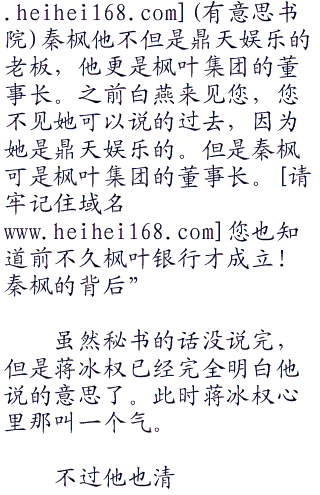 .heihei168.com](有意思书
院)秦枫他不但是鼎天娱乐的
老板，他更是枫叶集团的董
事长。之前白燕来见您，您
不见她可以说的过去，因为
她是鼎天娱乐的。但是秦枫
可是枫叶集团的董事长。[请
牢记住域名
www.heihei168.com]您也知
道前不久枫叶银行才成立！
秦枫的背后”
虽然秘书的话没说完，
但是蒋冰权已经完全明白他
说的意思了。此时蒋冰权心
里那叫一个气。
不过他也清